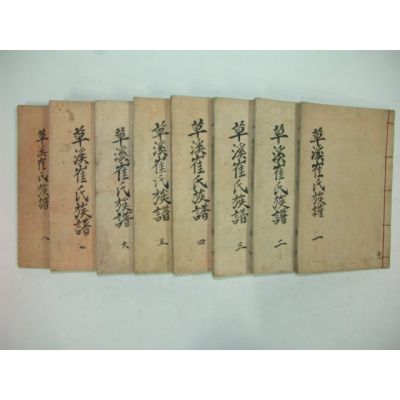 草溪崔氏族譜 一
草溪崔氏族譜 二
草溪崔氏族譜 三
草溪崔氏族譜 四
草溪崔氏族譜 五
草溪崔氏族譜 六
草溪崔氏族譜 七
草溪崔氏族譜 八